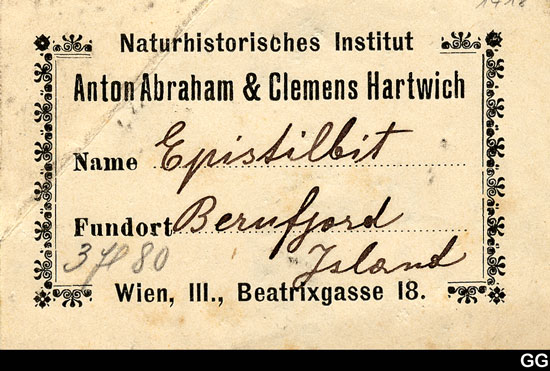 Naturhistorisches Institut
Anton Abraham & Clemens Hartwich
Name Epistilbit
Fundort Berufjord
Island
Wien, III., Beatrixgasse 18.
GG